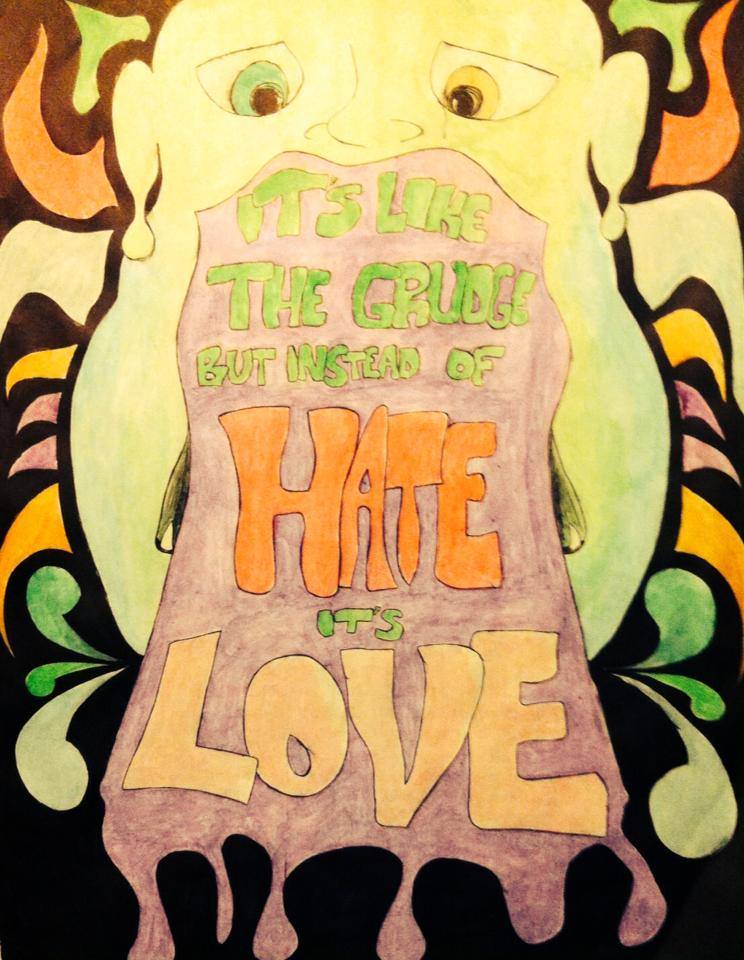 IT'S LIKE
THE GRUDGE
BUT INSTEAD OF
HATE
IT'S
LOVE